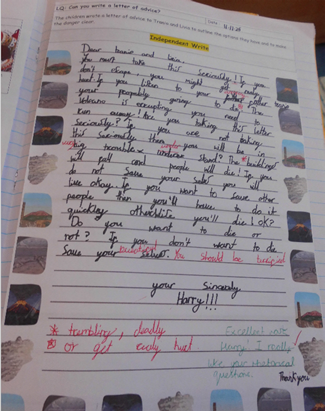 LQ: Can you write a letter of advice?
Date 11.11.24
The children wrote a letter of advice to Tranio and Livia to outline the options they have and to make
the danger clear.
Independent Write
Dear tranio and Livia.
You must take this seriously! If you
don't escape, you might
but If you listen to your father
your probably going to die! The
Volcano is erupting you need to
Run away! Are you taking this letter
Seriously? If you are not taking
this Seriously then you will be in
big trouble undersand? The buildings
will fall and people will die! If you
do not save your self you will
live okay if you want to save other
people then you'll have to do it
quickley otherwise you'll die! OK?
Do you want to die or
not? If you don't want to die
Save your selves. You should be
your Sincerly
Harry!!!
* trembling, deadly
or get early hurt
Excellent work
Harry! I really
like your rhetorical
questions.
Thankyou